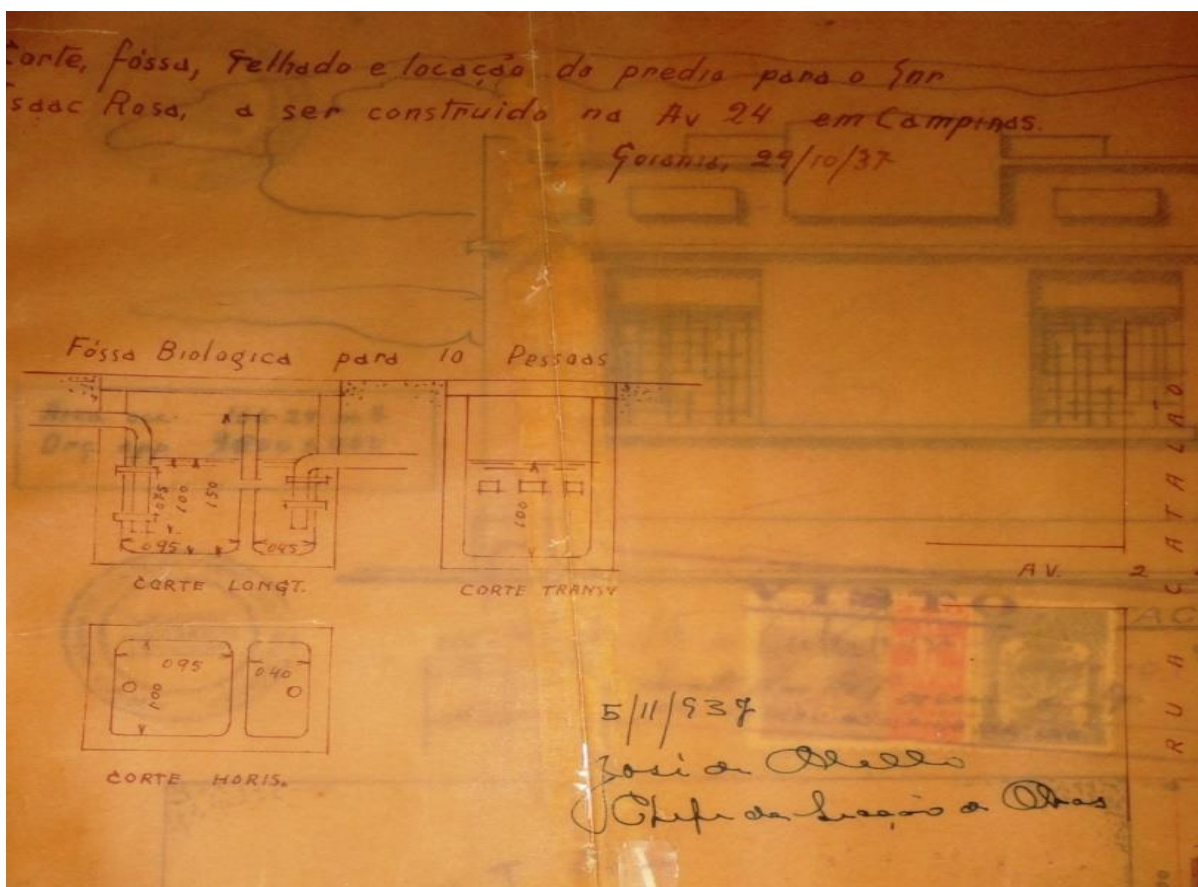 Corte, fóssa, Telhado e locação do predio para o Snr
Isaac Rosa, a ser construido na Av 24 em Campinas.
Goiania, 29/10/37
Fóssa Biologica para 10 Pessoas
075
100
150
095
045
CORTE LONGT.
100
CORTE TRANSV
095
100
040
CORTE HORIS.
AV. 2
RUA CATALÃO
VISTO
5/11/937
José de
Chefe da Secção de Obras